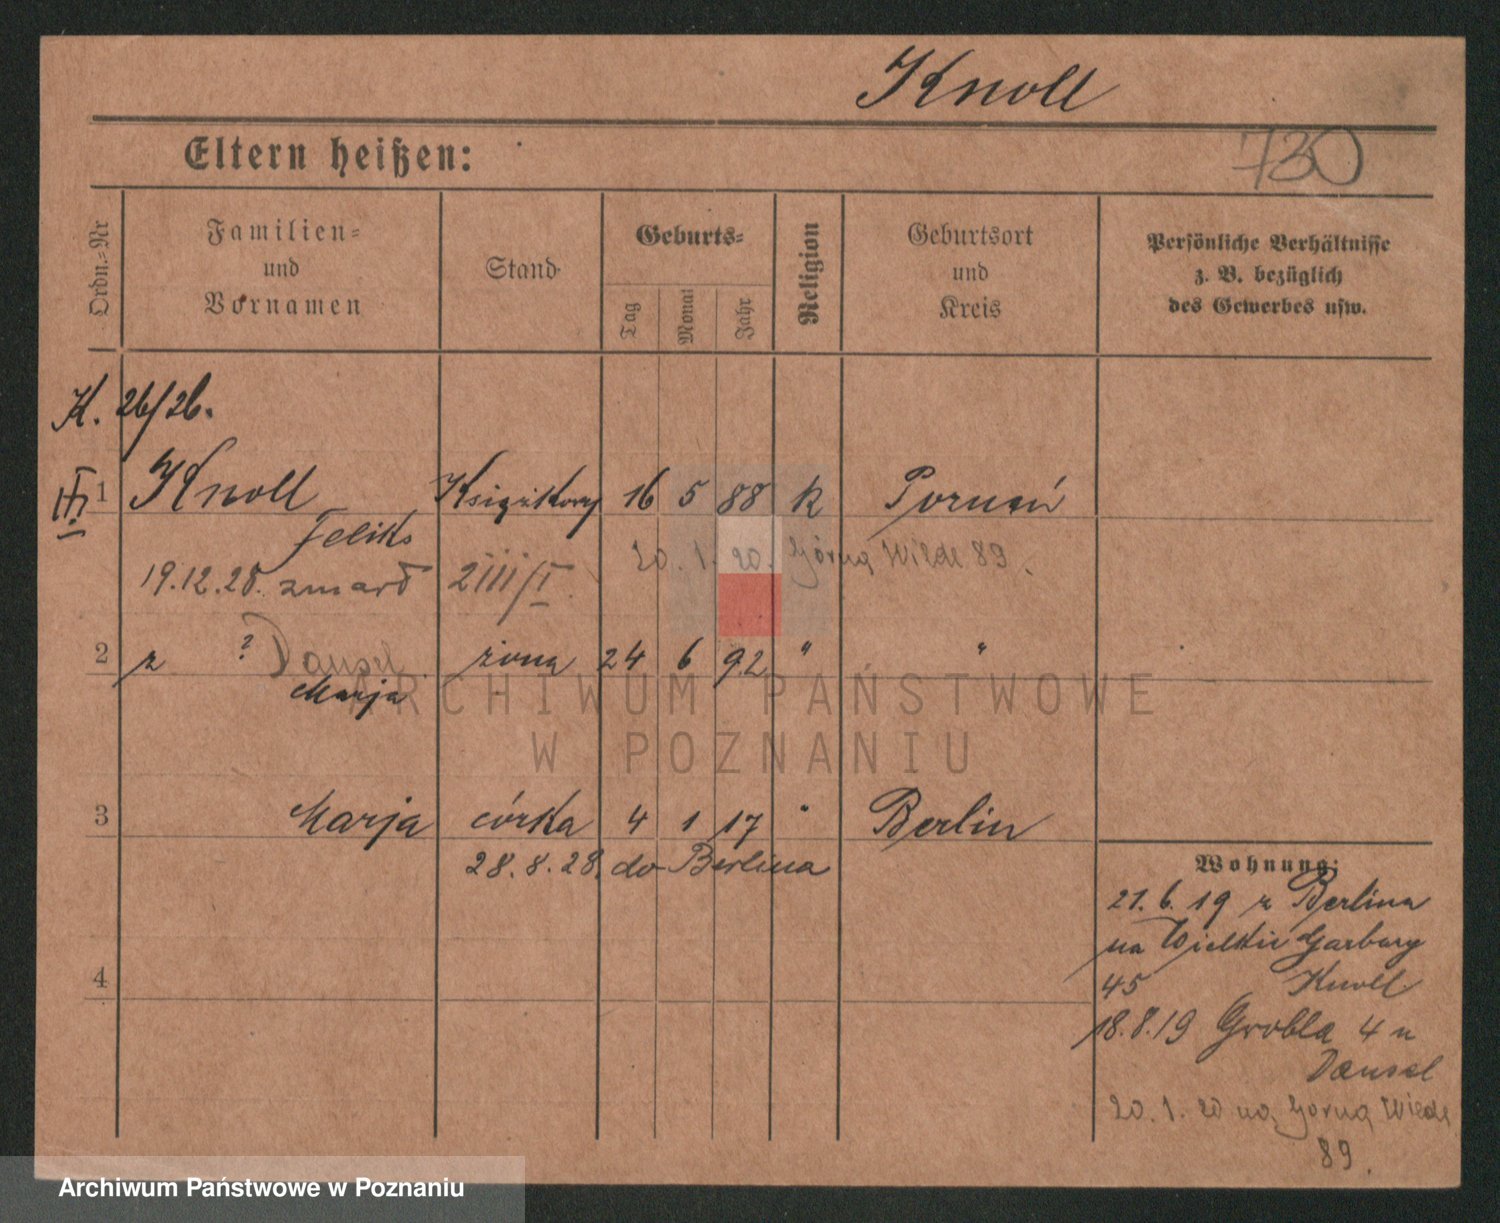 Knoll
730
Eltern heißen:
Ordn.-Nr
Familien-
und
Vornamen
Stand
Geburts-
Tag
Monat
Jahr
Religion
Geburtsort
und
Kreis
Persönliche Verhältnisse
z. B. bezüglich
des Gewerbes usw.
K. 26/26.
III 1 Knoll Książkowy 16 5 88 k Poznań
Feliks
20. 1. 20. Górna Wilde 89.
19.12.28. zmarł
2 z ? Dausel żona 24 6 92 " "
Marja
ARCHIWUM PAŃSTWOWE
W POZNANIU
3 Marja córka 4 1 17 " Berlin
28. 8. 28. do Berlina
4
Wohnung:
21. 6. 19 z Berlina
na Wielkie Garbary
45 Knoll
18.8.19 Grobla 4 u
Dausel
20. 1. 20 na Górną Wilde
89.
Archiwum Państwowe w Poznaniu